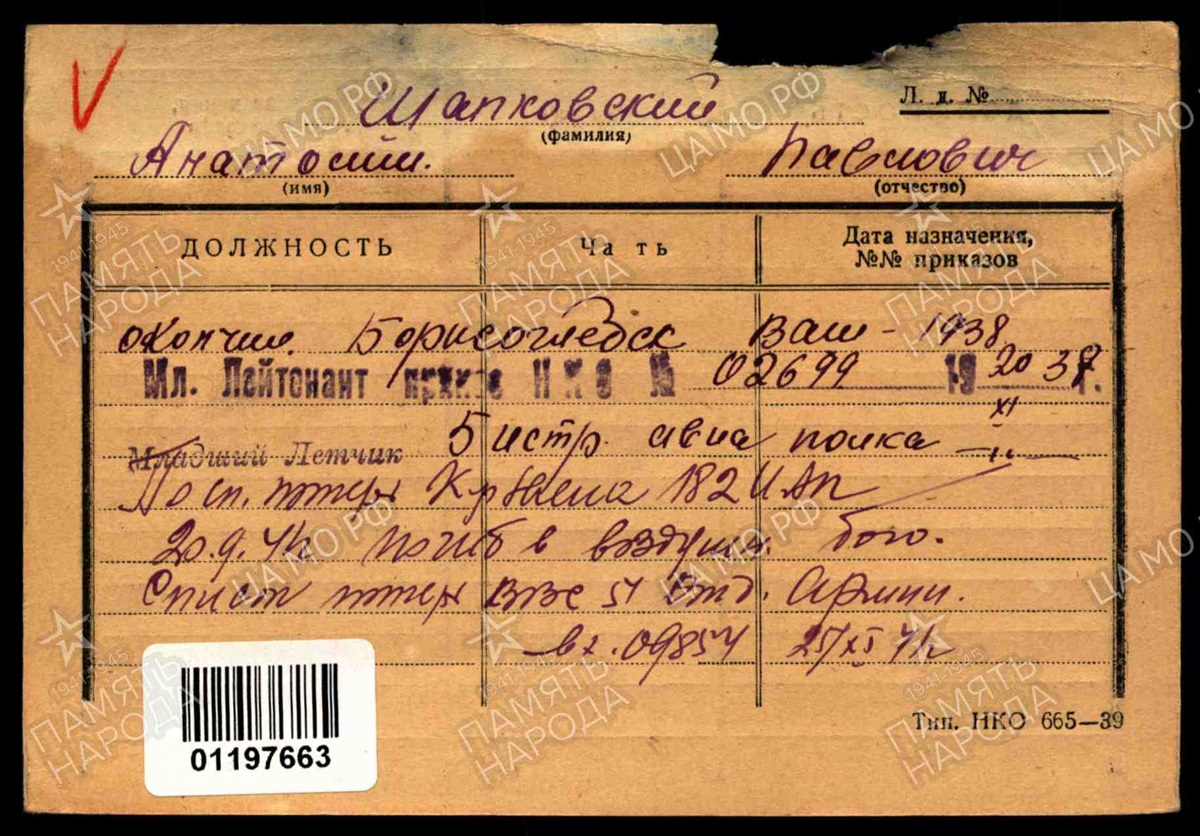 Шапковский
Л. д. №
(фамилия)
Анатолий. Павлович
(имя) (отчество)
ДОЛЖНОСТЬ Часть Дата назначения, №№ приказов
окончил. Борисоглебск ВАШ - 1938
Мл. Лейтенант приказ НКО № 02699 19 20 38 г.
XI
Младший Летчик 5 истр. авиа полка
По сп. потерь 182 ИАП
погиб в воздушн. бою.
потерь ВВС 51 Отд. Армии.
вх. 09854 25/XI 42
Тип. НКО 665—39
01197663
ЦАМО РФ
1941-1945
ПАМЯТЬ НАРОДА